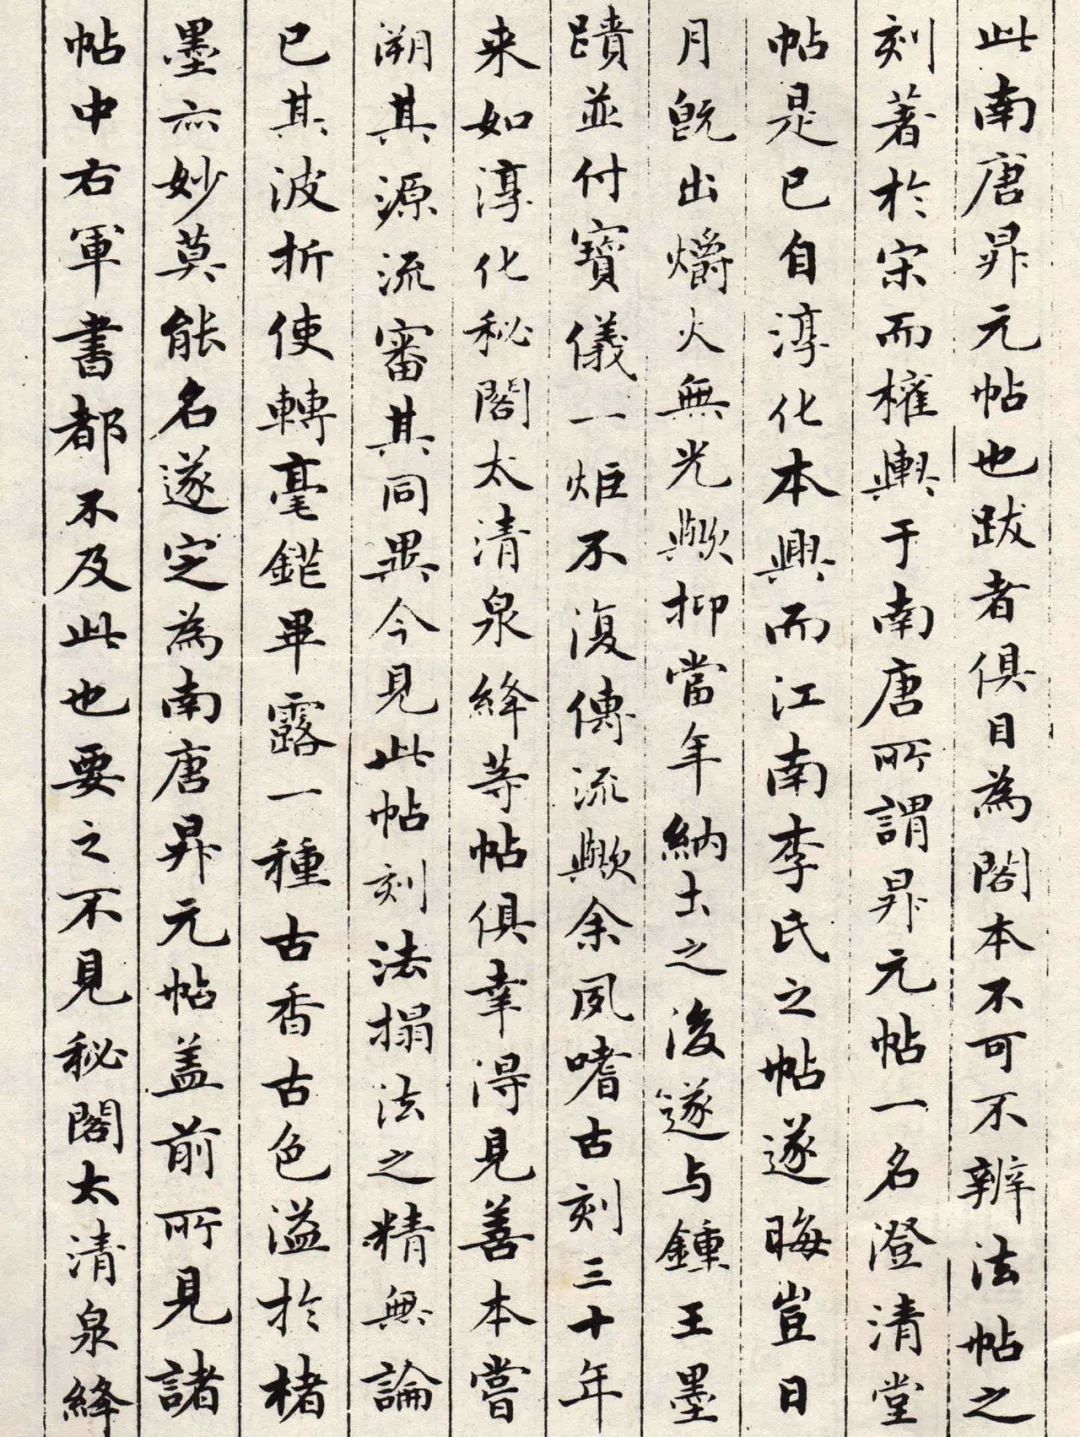 此南唐昇元帖也跋者俱目為閣本不可不辨法帖之
刻著於宋而權輿于南唐所謂昇元帖一名澄清堂
帖是已自淳化本興而江南李氏之帖遂晦豈日
月既出爝火無光歟抑當年納土之後遂与鍾王墨
蹟並付寶儀一炬不復傳流歟余夙嗜古刻三十年
来如淳化秘閣太清泉絳等帖俱幸得見善本嘗
溯其源流審其同異今見此帖刻法搨法之精無論
已其波折使轉毫鋩畢露一種古香古色溢於楮
墨亦妙莫能名遂定為南唐昇元帖盖前所見諸
帖中右軍書都不及此也要之不見秘閣太清泉絳